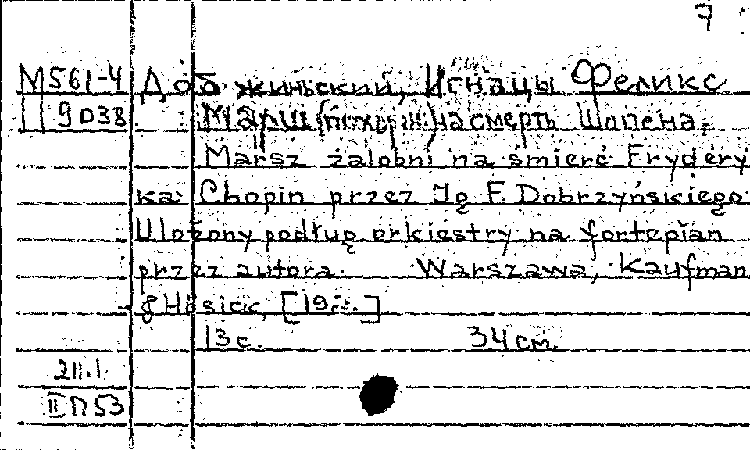 7
М561-4 Добжиньский, Игнацы Феликс
9038 Марш [похор.] на смерть Шопена.
Marsz żalobni na śmierć Frydery
ka Chopin przez Ig F. Dobrzyńskiego
Ulożony podług orkiestry na fortepian
przez autora. Warszawa, Kaufman
& Hösick, [19в.]
13 с. 34 см.
211.1
II П 53